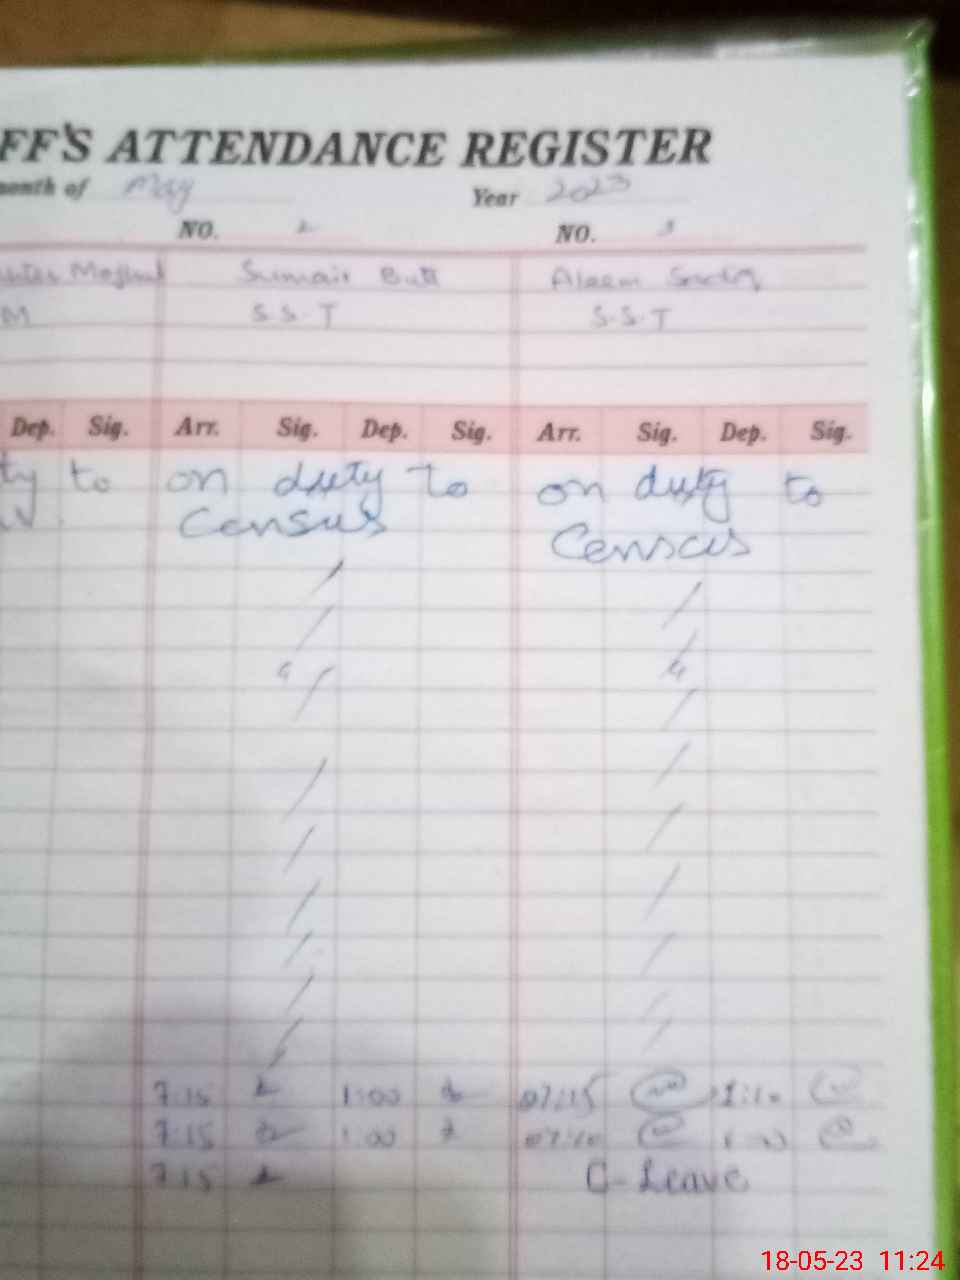 FF'S ATTENDANCE REGISTER
month of May Year 2023
NO. 2 NO. 3
Sumair Butt Aleem
M S.S.T S.S.T
Dep. Sig. Arr. Sig. Dep. Sig. Arr. Sig. Dep. Sig.
ty to on duty to on duty to
Census Census
7:15 1:00 07:15 1:10
7:15 1:00 07:10 1:00
7:15 C-Leave
18-05-23 11:24